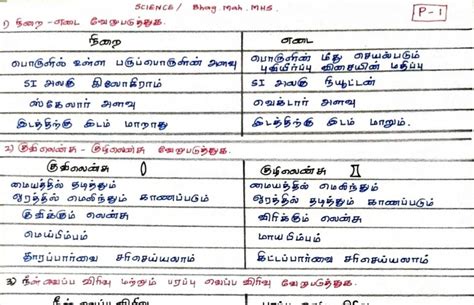 SCIENCE / Bhag. Mah. MHS.
P-1
1) நிறை - எடை வேறுபடுத்துக.
நிறை எடை
பொருளில் உள்ள பருப்பொருளின் அளவு பொருளின் மீது செயல்படும் புவியீர்ப்பு விசையின் மதிப்பு
SI அலகு கிலோகிராம் SI அலகு நியூட்டன்
ஸ்கேலார் அளவு வெக்டார் அளவு
இடத்திற்கு இடம் மாறாது இடத்திற்கு இடம் மாறும்.
2) குவிலென்சு - குழிலென்சு வேறுபடுத்துக.
குவிலென்சு குழிலென்சு
மையத்தில் தடித்தும் மையத்தில் மெலிந்தும்
ஓரத்தில் மெலிந்தும் காணப்படும் ஓரத்தில் தடித்தும் காணப்படும்
குவிக்கும் லென்சு விரிக்கும் லென்சு
மெய்பிம்பம் மாயபிம்பம்
தூரப்பார்வை சரிசெய்யலாம் கிட்டப்பார்வை சரிசெய்யலாம்
3) நீள் வெப்ப விரிவு மற்றும் பரப்பு வெப்ப விரிவு வேறுபடுத்துக.
நீள் வெப்ப விரிவு பரப்பு வெப்ப விரிவு